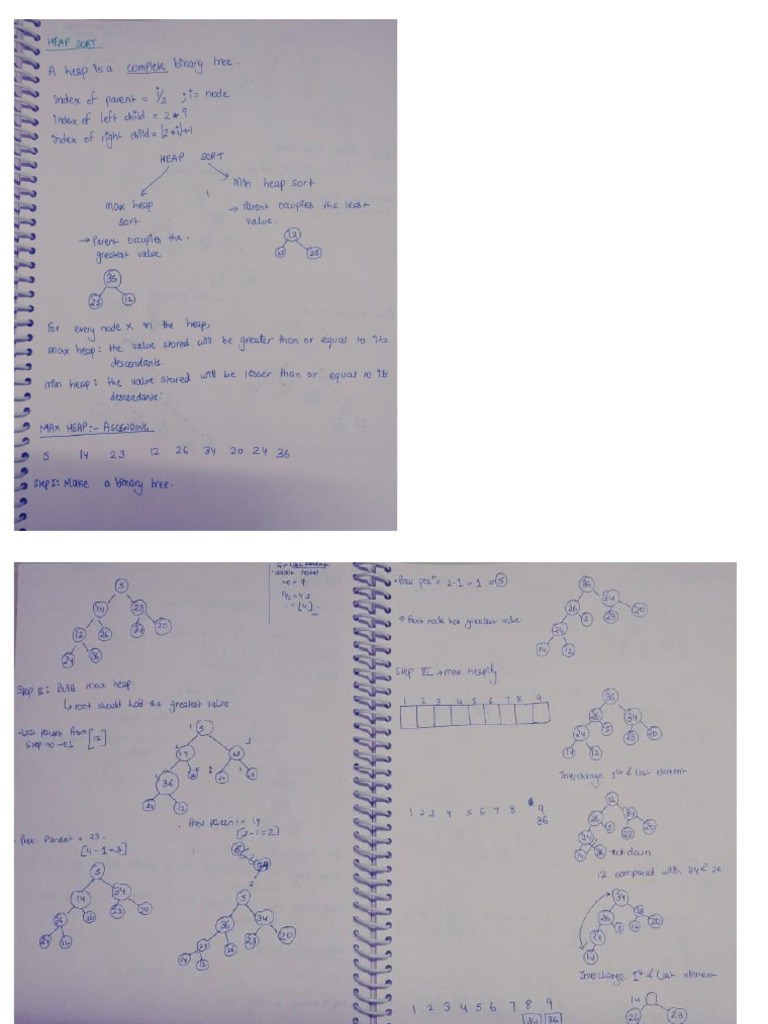 HEAP SORT
A heap is a complete binary tree.
index of parent = i/2 ; i = node
index of left child = 2 * 9
index of right child = (2*i)+1
HEAP SORT
max heap
sort
→ Parent occupies the
greatest value
35
23 12
Min heap sort
→ Parent occupies the least
value.
12
23 35
For every node x in the heap,
max heap: the value stored will be greater than or equal to its
descendants
min heap: the value stored will be lesser than or equal to its
descendants.
MAX HEAP:- ASCENDING
5 14 23 12 26 34 20 24 36
Step I: Make a binary tree.
5
14 23
12 26 34 20
24 36
no = 9
9/2 = 4.5
= [4]
Step II: Build max heap.
↳ root should hold the greatest value
Last parent from [12]
Step no -01
5
14
36
12
Prev parent = 14
[3-1=2]
Prev Parent = 23
[4-1=3]
5
14 34
36 26 23 20
24 12
5
36 34
24 26 23 20
14 12
Prev posn = 2-1 = 1 = 5
→ Root node has greatest value
36
26 34
24 5 23 20
14 12
Step III → max heapify
1 2 3 4 5 6 7 8 9
36
26 34
24 5 23 20
14 12
Interchange 1st & last element
1 2 3 4 5 6 7 8 9
36
12
26 34
24 5 23 20
14 36
12 compared with 34 & 26
34
26
24 5 12 20
14
Interchange 1st & last element
1 2 3 4 5 6 7 8 9
34 36
14
26 23